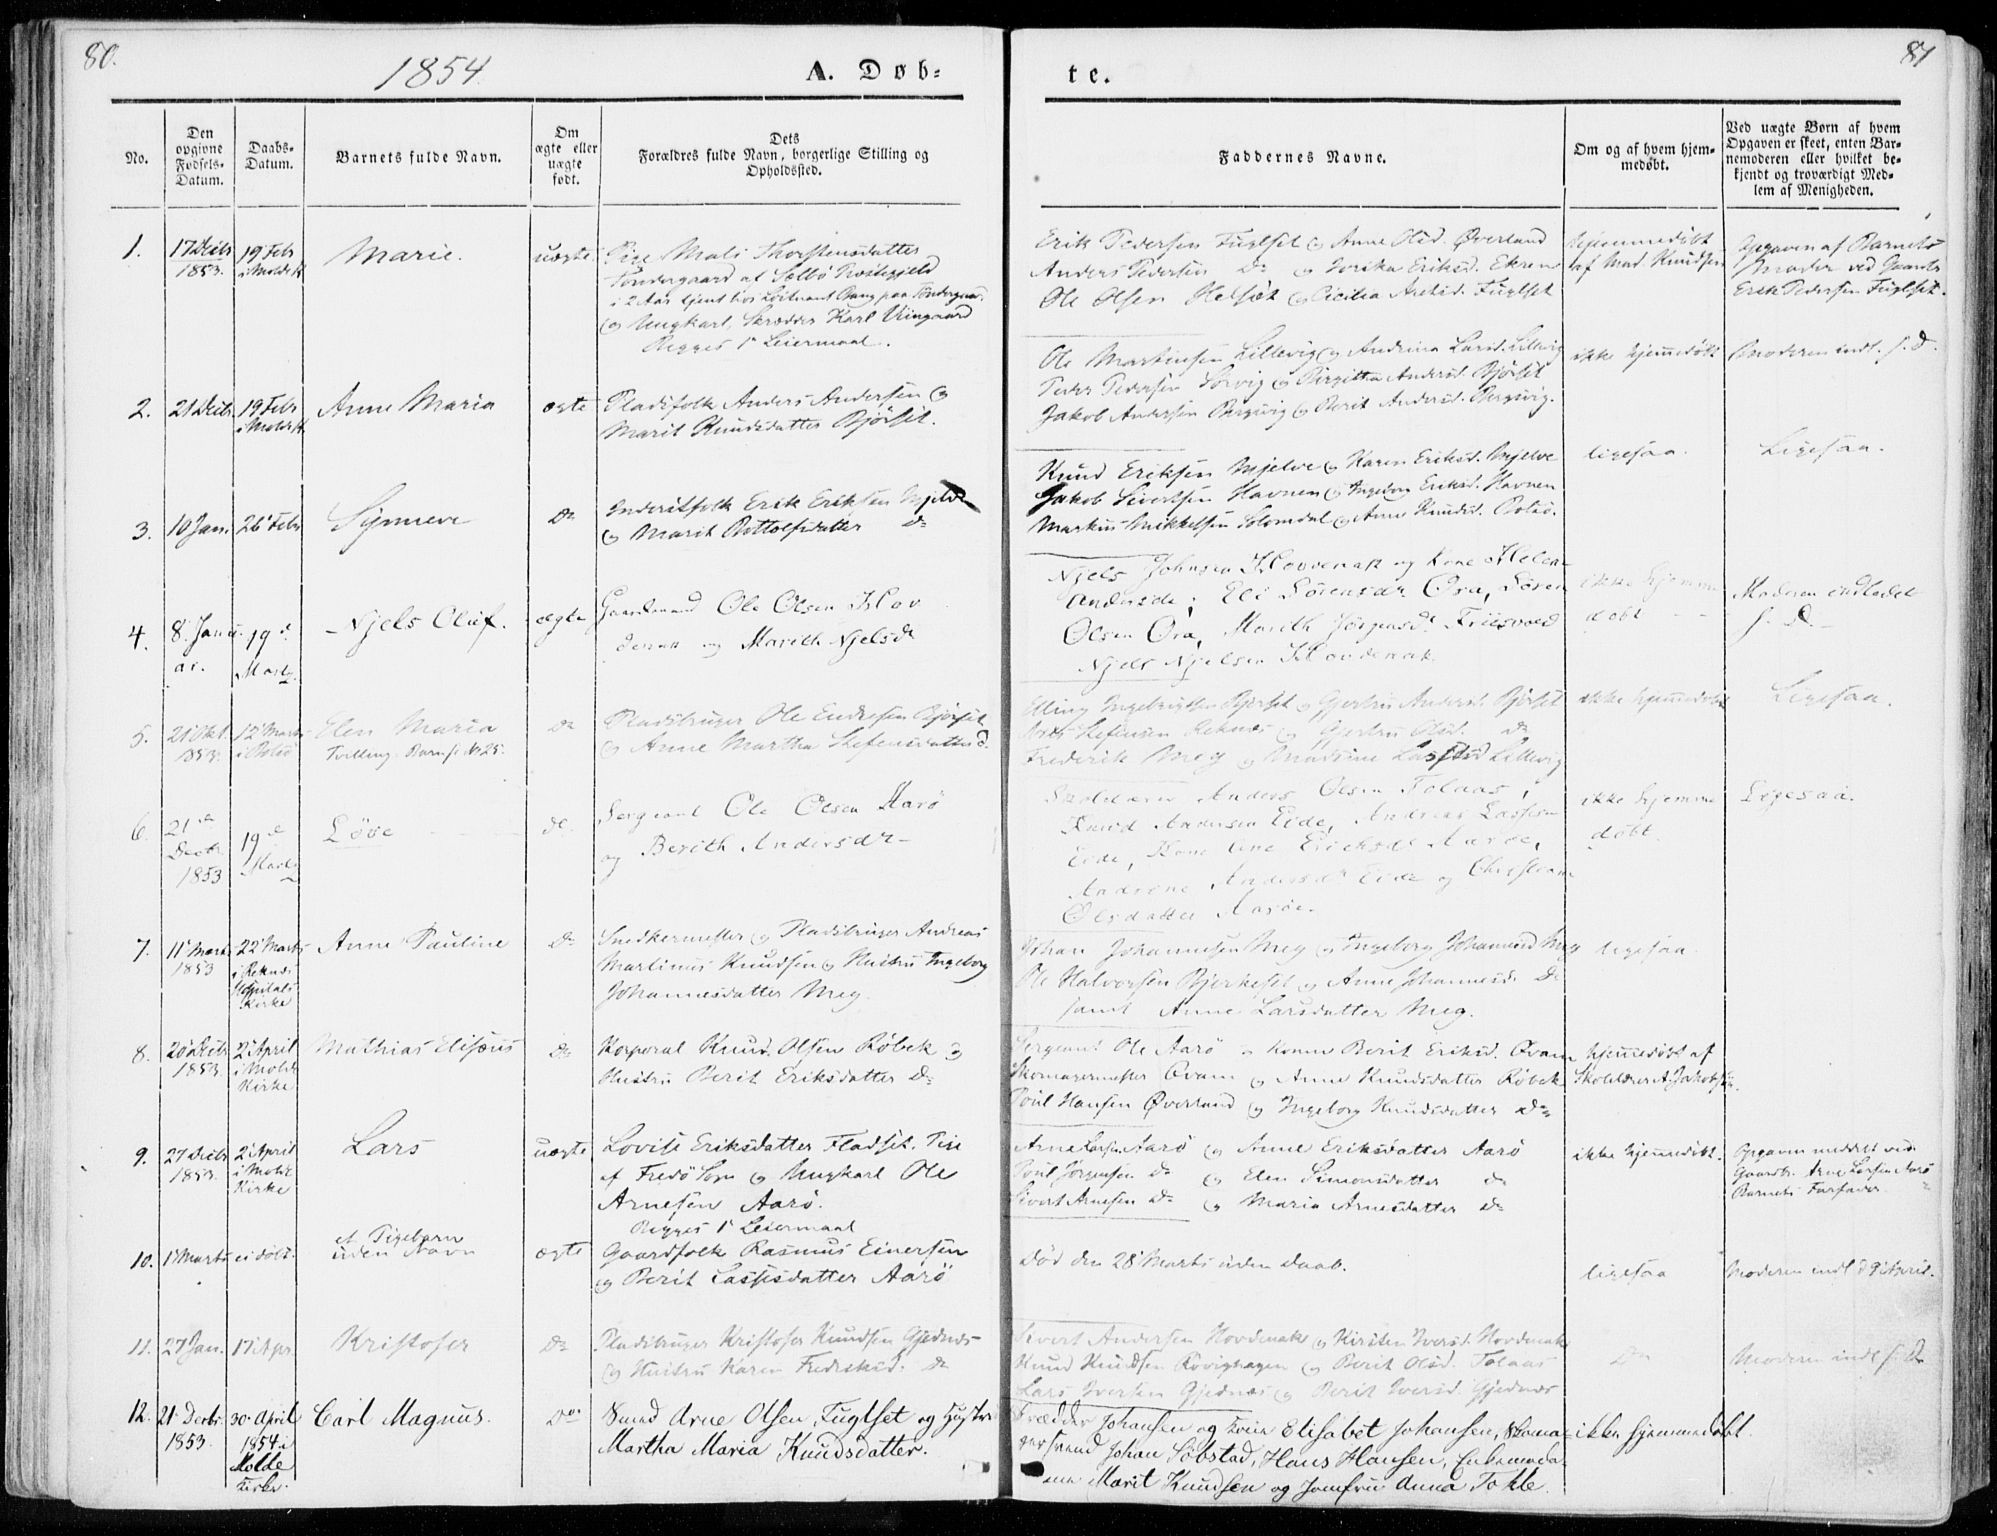 80.
1854.
A. Døb-
te.
81
No.
Den opgivne Fødsels-Datum.
Daabs-Datum.
Barnets fulde Navn.
Om ægte eller uægte født.
Dets Forældres fulde Navn, borgerlige Stilling og Opholdssted.
Faddernes Navne.
Om og af hvem hjem-medøbt.
Ved uægte Børn af hvem Opgaven er skeet, enten Bar-nemoderen eller hvilket be-kjendt og troværdigt Med-lem af Menigheden.
1.
17 Decbr 1853.
19 Febr i Molde K
Marie.
uægte
Pige Mali Thorstensdatter
Tøndergaard af Præstegjeld
i 2 Aar tjent hos Løitnant paa Tøndergaard
og Ungkarl, Skrædder Karl
Begges 1ste Leiermaal.
Erik Pedersen Fuglset og Anne Olsd. Øverland
Anders Pedersen Do og Eriksd. Ekrem
Ole Olsen og Cicilia Fuglset
Hjemmedøbt
af Mad. Knudsen
Opgaven af Barnets
Moder ved Gaardb.
Erik Pedersen Fuglset.
2.
21 Decbr.
19 Febr i Molde K
Anne Maria
ægte
Pladsfolk Anders Andersen og
Marit Knudsdatter Bjørset.
Ole Martinsen Lillevig og Andrina Larsd. Lillevig
Peder Pedersen Sørvig og Birgitha Andersd. Bjørset
Jakob Andersen Bergvig og Berit Andersd. Bergvig.
ikke hjemmedøbt
Moderen indl. s. D.
3.
10 Jan.
26 Febr
Synneve
Do
Inderstfolk Erik Eriksen Mjelve
og Marit Bottolfsdatter Do
Knud Eriksen Mjelve og Karen Eriksd. Mjelve
Jakob Sivertsen Havnen og Ingeborg Eriksd. Havnen
Markus Mikkelsen Solemdal og Anne Knudsd. Bolsø.
ligesaa.
Ligesaa.
4.
8. Janu
ar.
19de
Marts.
Njels Oluf.
ægte
Gaardmand Ole Olsen Hov
denak og Marith Njelsdr
Njels Johnsen Hovdenak og Kone Helena
Andersdr; Eli Sørensdr Øra, Søren
Olsen Øra, Marith Jørgensdr Friisvold
Njels Njelsen Hovdenak.
ikke hjemme
døbt
Moderen indledet
s. D.
5.
21 Okt. 1853.
12 Marts i Bolsø
Elen Maria
Tvilling Barn f. No 25.
Do
Pladsbruger Ole Endresen Bjørset
og Anne Martha Stefensdatter Do
Elling Ingebrigtsen Bjørset og Gjertru Andersd. Bjørset
Stefensen Reknæs og Gjertru Olsd. Do
Frederik Meg og Madsine Lassesd Lillevig
ikke hjemmedøbt
Ligesaa.
6.
21de Decbr 1853
19de Marts
Løve
do.
Sergeant Ole Olsen Aarø
og Berith Andersdr
Skolelærer Anders Olsen Tolaas,
Knud Andersen Eide, Andreas Lassesen
Eide, Kone Ane Eriksdr Aarøe,
Andrine Andersdr Eide og Christiane
Olsdatter Aarøe.
ikke hjemme
døbt.
Ligesaa.
7.
11 Marts 1853
22 Marts i Reknæs Hospitals Kirke
Anne Pauline
Do
Snedkermester og Pladsbruger Andreas
Martinus Knudsen og Hustru Ingeborg
Johannesdatter Meg.
Johan Johannesen Meg og Ingeborg Johannesd Meg
Ole Halvorsen Bjerkeset og Anne Johannesd. Do
samt Anne Larsdatter Meg.
ligesaa
8.
20 Decbr 1853.
2 April i Molde Kirke
Mathias Elisæus
Do
Korporal Knud Olsen Røbek og
Hustru Berit Eriksdatter Do
Sergeant Ole Aarø og Konne Berit Eriksd. Qvam
Skomagermester Qvam og Anne Knudsdatter Røbek
Poul Hansen Øverland og Ingeborg Knudsdatter Do
hjemmedøbt af
Skolelærer A. Jakobsen.
9.
27 Decbr 1853.
2 April i Molde Kirke
Lars
uægte
Lovise Eriksdatter Fladset. Pige
af Fredø Sogn og Ungkarl Ole
Arnesen Aarø.
Begges 1ste Leiermaal
Arne Larsen Aarø og Anne Eriksdatter Aarø
Poul Jørgensen Do og Elen Simonsdatter Do
Sivert Arnesen Do og Maria Arnesdatter Do
ikke hjemmedøbt.
Opgaven meddelt ved
Gaardb. Arne Larsen Aarø
Barnets Farfader.
10.
1 Marts
ei døbt.
et Pigebarn
uden Navn
ægte
Gaardfolk Rasmus Einersen
og Berit Lassesdatter Aarø
Død den 28 Marts uden Daab.
ligesaa
Moderen indl d 9 April.
11.
27 Jan.
17 Apr.
Kristofer
Do
Pladsbruger Kristofer Knudsen Gjednæs
og Hustru Karen Frederiksd. Do
Sivert Andersen Hovdenak og Kirsten Iversd. Hovdenak
Knud Knudsen Røvighagen og Berit Olsd. Tolaas
Lars Iversen Gjednæs og Berit Iversd. Gjednæs
Do
Moderen indl s. D
12.
21 Decbr. 1853.
30 April 1854 i Molde Kirke.
Carl Magnus.
Do
Smed Arne Olsen Fuglset og Hustru
Martha Maria Knudsdatter.
Skrædder Johansen og Kone Elisabet Johansen, Skoma-
gersvend Johan Søbstad, Hans Hansen, Enkemada-
me Marit Knudsen og Jomfru Anna Tokle.
ikke hjemmedøbt.